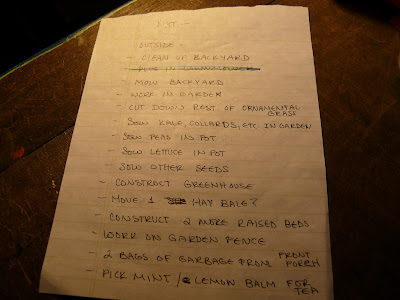 LIST -
OUTSIDE -
- CLEAN UP BACKYARD
- MOW BACKYARD
- WORK IN GARDEN
- CUT DOWN REST OF ORNAMENTAL
GRASS
- SOW KALE, COLLARDS, ETC. IN GARDEN
- SOW PEAS IN POT
- SOW LETTUCE IN POT
- SOW OTHER SEEDS
- CONSTRUCT GREENHOUSE
- MOVE 1 HAY BALE?
- CONSTRUCT 2 MORE RAISED BEDS
- WORK ON GARDEN FENCE
- 2 BAGS OF GARBAGE FROM FRONT
PORCH
- PICK MINT / LEMON BALM FOR
TEA